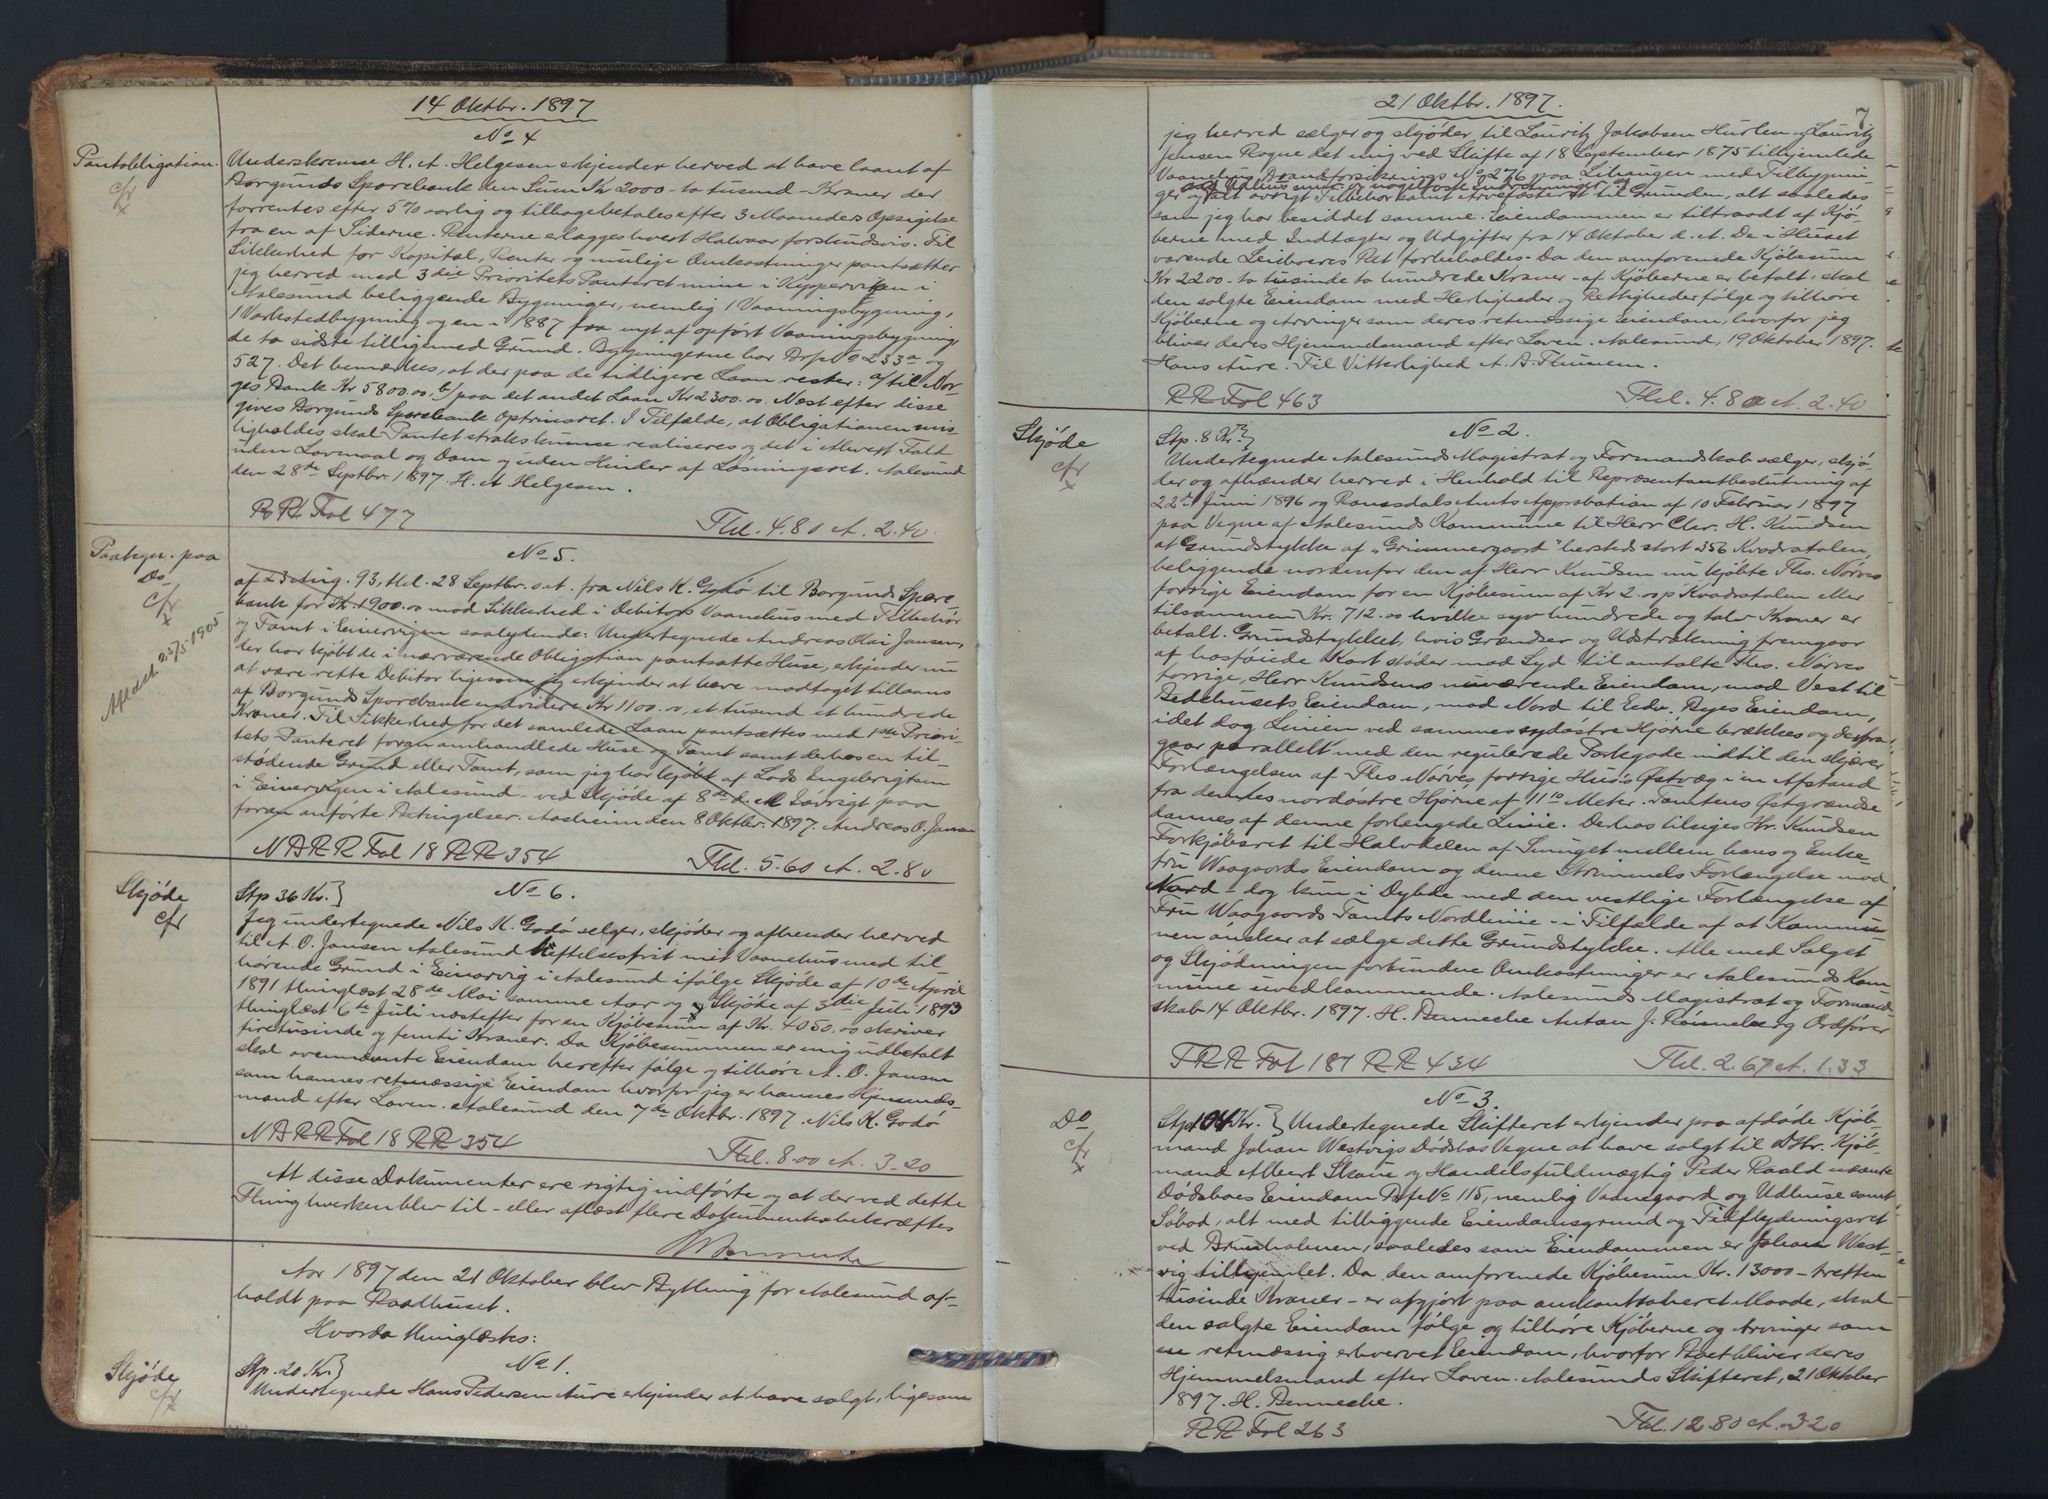 14 Oktbr. 1897
No 4
Pantobligation.
cfr
x
Underskrevne H. A. Helgesen erkjender herved at have laant af
Borgunds Sparebank den Sum Kr 2000 - to tusind - Kroner der
forrentes efter 5% aarlig og tilbagebetales efter 3 Maaneders Opsigelse
fra en af Siderne. Renterne erlægges hvert Halvaar forskudsvis. Til
Sikkerhed for Kapital, Renter og mulige Omkostninger pantsætter
jeg herved med 3die Prioritets Panteret mine i Kippervigen i
Aalesund beliggende Bygninger, nemlig 1 Vaaningsbygning,
1 Værkstedbygning og en i 1887 fra nyt af opført Vaaningsbygning
de to sidste tilligemed Grund. Bygningerne har Brfs No 233a og
527. Det bemærkes, at der paa de tidligere Laan rester: a/ til Nor-
ges Bank Kr 5800.00, b/ paa det andet Laan Kr 2300.00. Næst efter disse
gives Borgunds Sparebank Optrinsret. I Tilfælde, at Obligationen mis-
ligholdes skal Pantet straks kunne realiseres og det i ethvert Fald
uden Lovmaal og Dom og uden Hinder af Løsningsret. Aalesund
den 28de Septbr. 1897. H. A. Helgesen.
RR Fol 477 Thl. 4.80 A. 2.40.
Paategn. paa
Do
cfr
x
Aflæst 25/5 1905
No 5.
af 23 Aug. 93, thl. 28 Septbr. s.A. fra Nils K. Godø til Borgunds Spare
bank for Kr. 1900.00 mod Sikkerhed i Debitors Vaanehus med Tilbehør
og Tomt i Einervigen saalydende: Undertegnede Andreas Olai Jansen,
der har kjøbt de i nærværende Obligation pantsatte Huse, erkjender nu
at være rette Debitor ligesom jeg erkjender at have modtaget tillaans
af Borgunds Sparebank endvidere Kr 1100.00, et tusend et hundrede
Kroner. Til Sikkerhed for det samlede Laan pantsættes med 1ste Priori-
tets Panteret foran omhandlede Huse og Tomt samt derhos en til-
stødende Grund eller Tomt, som jeg har kjøbt af Lods Engebrigtsen
i Einervigen i Aalesund ved Skjøde af 8de d. M. Iøvrigt paa
foran anførte Betingelser. Aasheim den 8 Oktbr. 1897. Andreas O. Jansen
NBRR Fol 18 RR 354 Thl. 5.60 A. 2.80
Skjøde
cfr
Stp 36 Kr.} No 6.
Jeg undertegnede Nils K. Godø selger, skjøder og afhender herved
til A. O. Jansen Aalesund heftelsesfrit mit Vaanehus med til
hørende Grund i Einervig i Aalesund ifølge Skjøde af 10de April
1891 thinglæst 28de Mai samme Aar og Skjøde af 3die Juli 1893
thinglæst 6te Juli næstefter for en Kjøbesum af Kr. 4050.00 skriver
firetusinde og femti Kroner. Da Kjøbesummen er mig udbetalt
skal ovennævnte Eiendom herefter følge og tilhøre A. O. Jansen
som hannes retmæssige Eiendom hvorfor jeg er hannes Hjemmels-
mand efter Loven. Aalesund den 7de Oktbr. 1897. Nils K. Godø
NBRR Fol 18 RR 354 Thl. 8.00 A. 3.20
At disse Dokumenter ere rigtig indførte og at der ved dette
Thing hverken blev til- eller aflæst flere Dokumenter bekræftes
Aar 1897 den 21 Oktober blev Bything for Aalesund af-
holdt paa Raadhuset.
Hvorda thinglæstes:
Skjøde
cfr
x
Stp. 20 Kr} No 1.
Undertegnede Hans Pedersen Aure erkjender at have solgt, ligesom
21 Oktbr. 1897.
7
jeg herved sælger og skjøder til Lauritz Jakobsen Hurlen og Lauritz
Jensen Rogne det mig ved Skifte af 18 September 1875 tilhjemlede
Vaanehus, Brandforsikrings No 276 paa Lihaugen med Tilbygnin-
ger og alt øvrigt Tilbehør samt Arvefæsteret til Grunden, alt saaledes
som jeg har besiddet samme. Eiendommen er tiltraadt af Kjø-
berne med Indtægter og Udgifter fra 14 Oktober d. A. De i Huset
værende Leieboeres Ret forbeholdes. Da den omforenede Kjøbesum
Kr 2200 - to tusinde to hundrede Kroner - af Kjøberne er betalt, skal
den solgte Eiendom med Herligheder og Rettigheder følge og tilhøre
Kjøberne og Arvinger som deres retmæssige Eiendom, hvorfor jeg
bliver deres Hjemmelsmand efter Loven. Aalesund, 19 Oktober 1897.
Hans Aure. Til Vitterlighed A. B. Thunem.
RR Fol 463 Thl. 4.80 A. 2.40
Skjøde
cfr
x
Stp. 8 Kr.} No 2.
Undertegnede Aalesunds Magistrat og Formandskab sælger, skjø-
der og afhænder herved i Henhold til Repræsentantbeslutning af
22de Juni 1896 og Romsdals Amts Approbation af 10 Februar 1897
paa Vegne af Aalesunds Kommune til Herr Chr. H. Knudsen
et Grundstykke af "Grimmergaard" hersteds stort 356 Kvadratalen,
beliggende nordenfor den af Herr Knudsen nu kjøbte Ths. Nørves
forrige Eiendom for en Kjøbesum af Kr 2.00 p Kvadratalen eller
tilsammen Kr. 712.00 hvilke syv hundrede og tolv Kroner er
betalt. Grundstykket, hvis Grændser og Udstrækning fremgaar
af hosføiede Kart støder mod Syd til omtalte Ths. Nørves
forrige, Herr Knudsens nuværende Eiendom, mod Vest til
Bedehusets Eiendom, mod Nord til Edv. Ryes Eiendom,
idet dog Linien ved sammes sydøstre Hjørne brækkes og derfra
gaar parallelt med den regulerede Torvgade indtil den skjærer
Forlængelsen af Ths Nørves forrige Hus's Østvæg i en Afstand
fra dennes nordøstre Hjørne af 11.10 Meter. Tomtens Østgrændse
dannes af denne forlængede Linie. Derhos tilsiges Hr. Knudsen
Forkjøbsret til Halvdelen af Smuget mellem hans og Enke-
fru Waagaards Eiendom og denne Strimmels Forlængelse mod
Nord - dog kun i Dybde med den vestlige Forlængelse af
Fru Waagaards Tomts Nordlinie - i Tilfælde af at Kommu-
nen ønsker at sælge dette Grundstykke. Alle med Salget
og Skjødningen forbundne Omkostninger er Aalesunds Kom-
mune uvedkommende. Aalesunds Magistrat og Formand-
skab 14 Oktbr. 1897. H. Bennecke Anton J. Rønneberg Ordfører
TRR Fol 181 RR 434 Thl. 2.67 A. 1.33
Do
cfr
x
No 3
Stp 104 Kr.} Undertegnede Skifteret erkjender paa afdøde Kjøb-
mand Johan Westvigs Dødsbos Vegne at have solgt til Dhr. Kjøb-
mand Albert Skaue og Handelsfuldmægtig Peder Raald nævnte
Dødsboes Eiendom Brfs No 115, nemlig Vaanegaard og Udhuse samt
Søbod, alt med tilliggende Eiendomsgrund og Tilflydningsret
ved Brunholmen, saaledes som Eiendommen er Johan West-
vig tilhjemlet. Da den omforenede Kjøbesum Kr. 13000 - tretten
tusinde Kroner - er afgjort paa omkontraheret Maade, skal
den solgte Eiendom følge og tilhøre Kjøberne og Arvinger som
en retmæssig erhvervet Eiendom, hvorfor Boet bliver deres
Hjemmelsmand efter Loven. Aalesunds Skifteret, 21 Oktober
1897. H. Bennecke.
RR Fol 263 Thl. 12.80 A. 3.20